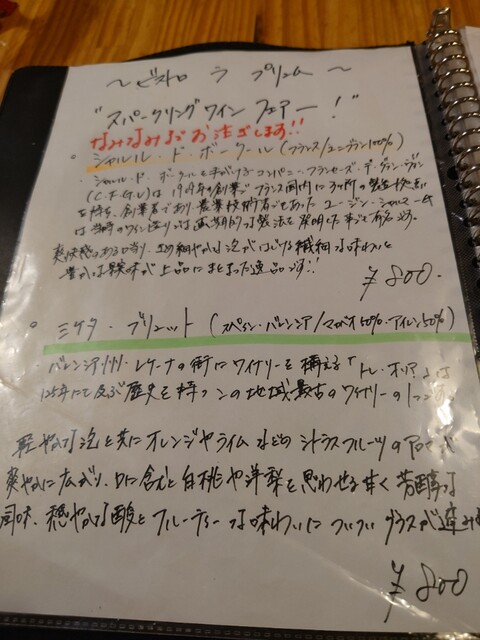 ～ビストロ ラ プリュム～
"スパークリングワイン フェアー！"
なみなみとお注ぎします!!
。シャルル・ド・ボークール (フランス/ユニブラン100%)
シャルル・ド・ボークールを手がけるコンパニー・フランセーズ・デ・グラン・ヴァン
(C・F・G・V)は 1909年の創業で フランス国内に3ヶ所の製造拠点
を持ち、創業者であり、農業技術者でもあった ユージン・シャルマー氏
は当時のワイン造りでは画期的な製法を発明した事で有名です。
爽快感のある口当り、きめ細やかな泡がはじける繊細な味わいと
豊かな果実味が上品にまとまった逸品です!!
¥800.
。ミケタ・ブリュット (スペイン・バレンシア/マカベオ50%・アイレン50%)
バレンシア州・レケーナの街にワイナリーを構える「トレ・オリア」は
125年にも及ぶ歴史を持つこの地域最古のワイナリーの1つです。
軽やかな泡と共にオレンジやライムなどのシトラスフルーツのアロマが
爽やかに広がり、口に含むと白桃や洋梨を思わせる甘く芳醇な
風味、穏やかな酸とフルーティーな味わいについついグラスが進み
¥800